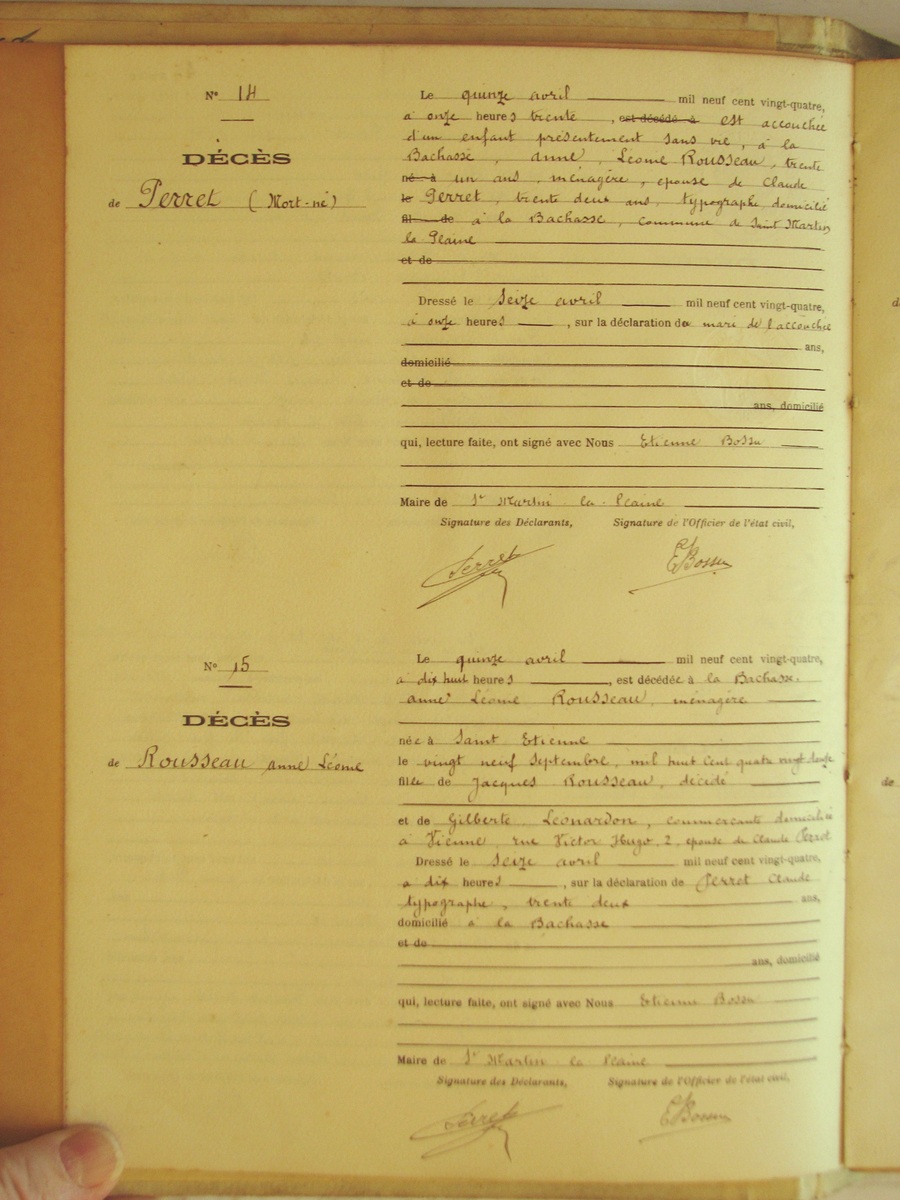 N° 14
DÉCÈS
de Perret (Mort-né)
Le quinze avril mil neuf cent vingt-quatre,
à onze heures trente, est décédé à est accouchée
d'un enfant présentement sans vie, à la
Bachasse, anne, Léonie Rousseau, trente
né à un ans, ménagère, epouse de Claude
le Perret, trente deux ans, typographe, domicilié
fil de à la Bachasse, commune de Saint Martin
la Plaine
et de
Dressé le Seize avril mil neuf cent vingt-quatre,
à onze heures, sur la déclaration du mari de l'accouchée
ans,
domicilié
et de
ans, domicilié
qui, lecture faite, ont signé avec Nous Etienne Bossu
Maire de St Martin la Plaine
Signature des Déclarants, Signature de l'Officier de l'état civil,
Perret EBossu
N° 15
DÉCÈS
de Rousseau anne Léonie
Le quinze avril mil neuf cent vingt-quatre,
à dix huit heures, est décédée à la Bachasse.
anne Léonie Rousseau, ménagère
née à Saint Etienne
le vingt neuf Septembre, mil huit cent quatre vingt douze
fille de Jacques Rousseau, décédé
et de Gilberte Léonardon, commerçante domiciliée
à Vienne, rue Victor Hugo, 2, epouse de Claude Perret
Dressé le Seize avril mil neuf cent vingt-quatre,
à dix heures, sur la déclaration de Perret Claude
typographe, trente deux ans,
domicilié à la Bachasse
et de
ans, domicilié
qui, lecture faite, ont signé avec Nous Etienne Bossu
Maire de St Martin la Plaine
Signature des Déclarants, Signature de l'Officier de l'état civil,
Perret EBossu